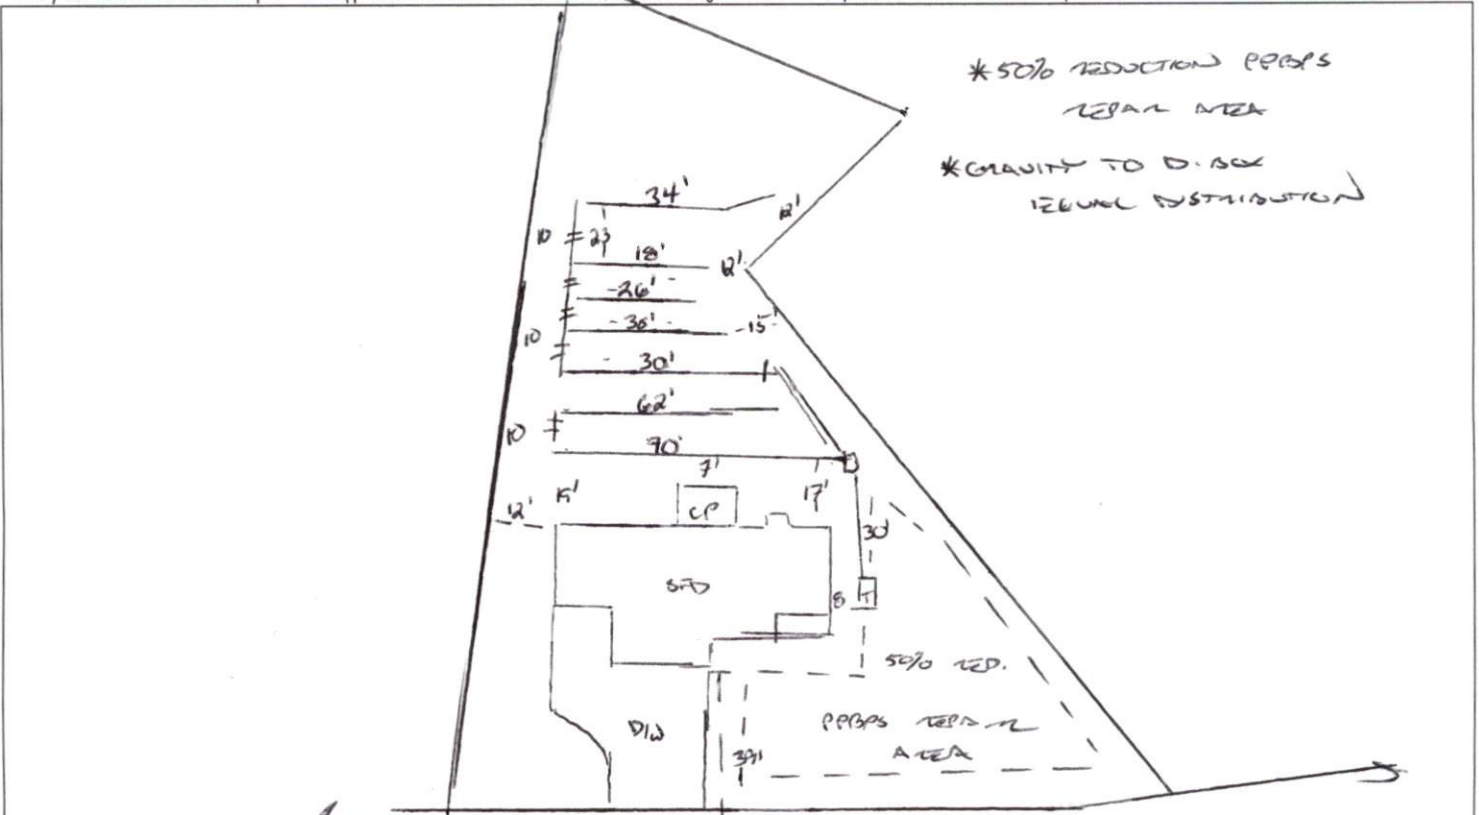 *50% REDUCTION PPBPS
REPAIR AREA
*GRAVITY TO D-BOX
EQUAL DISTRIBUTION
34'
12'
10
23
18'
12'
26'
15'
10
30'
62'
10
70'
7'
17'
12'
15'
CP
30'
SFD
8
T
50% RED.
D/W
PPBPS REPAIR
AREA